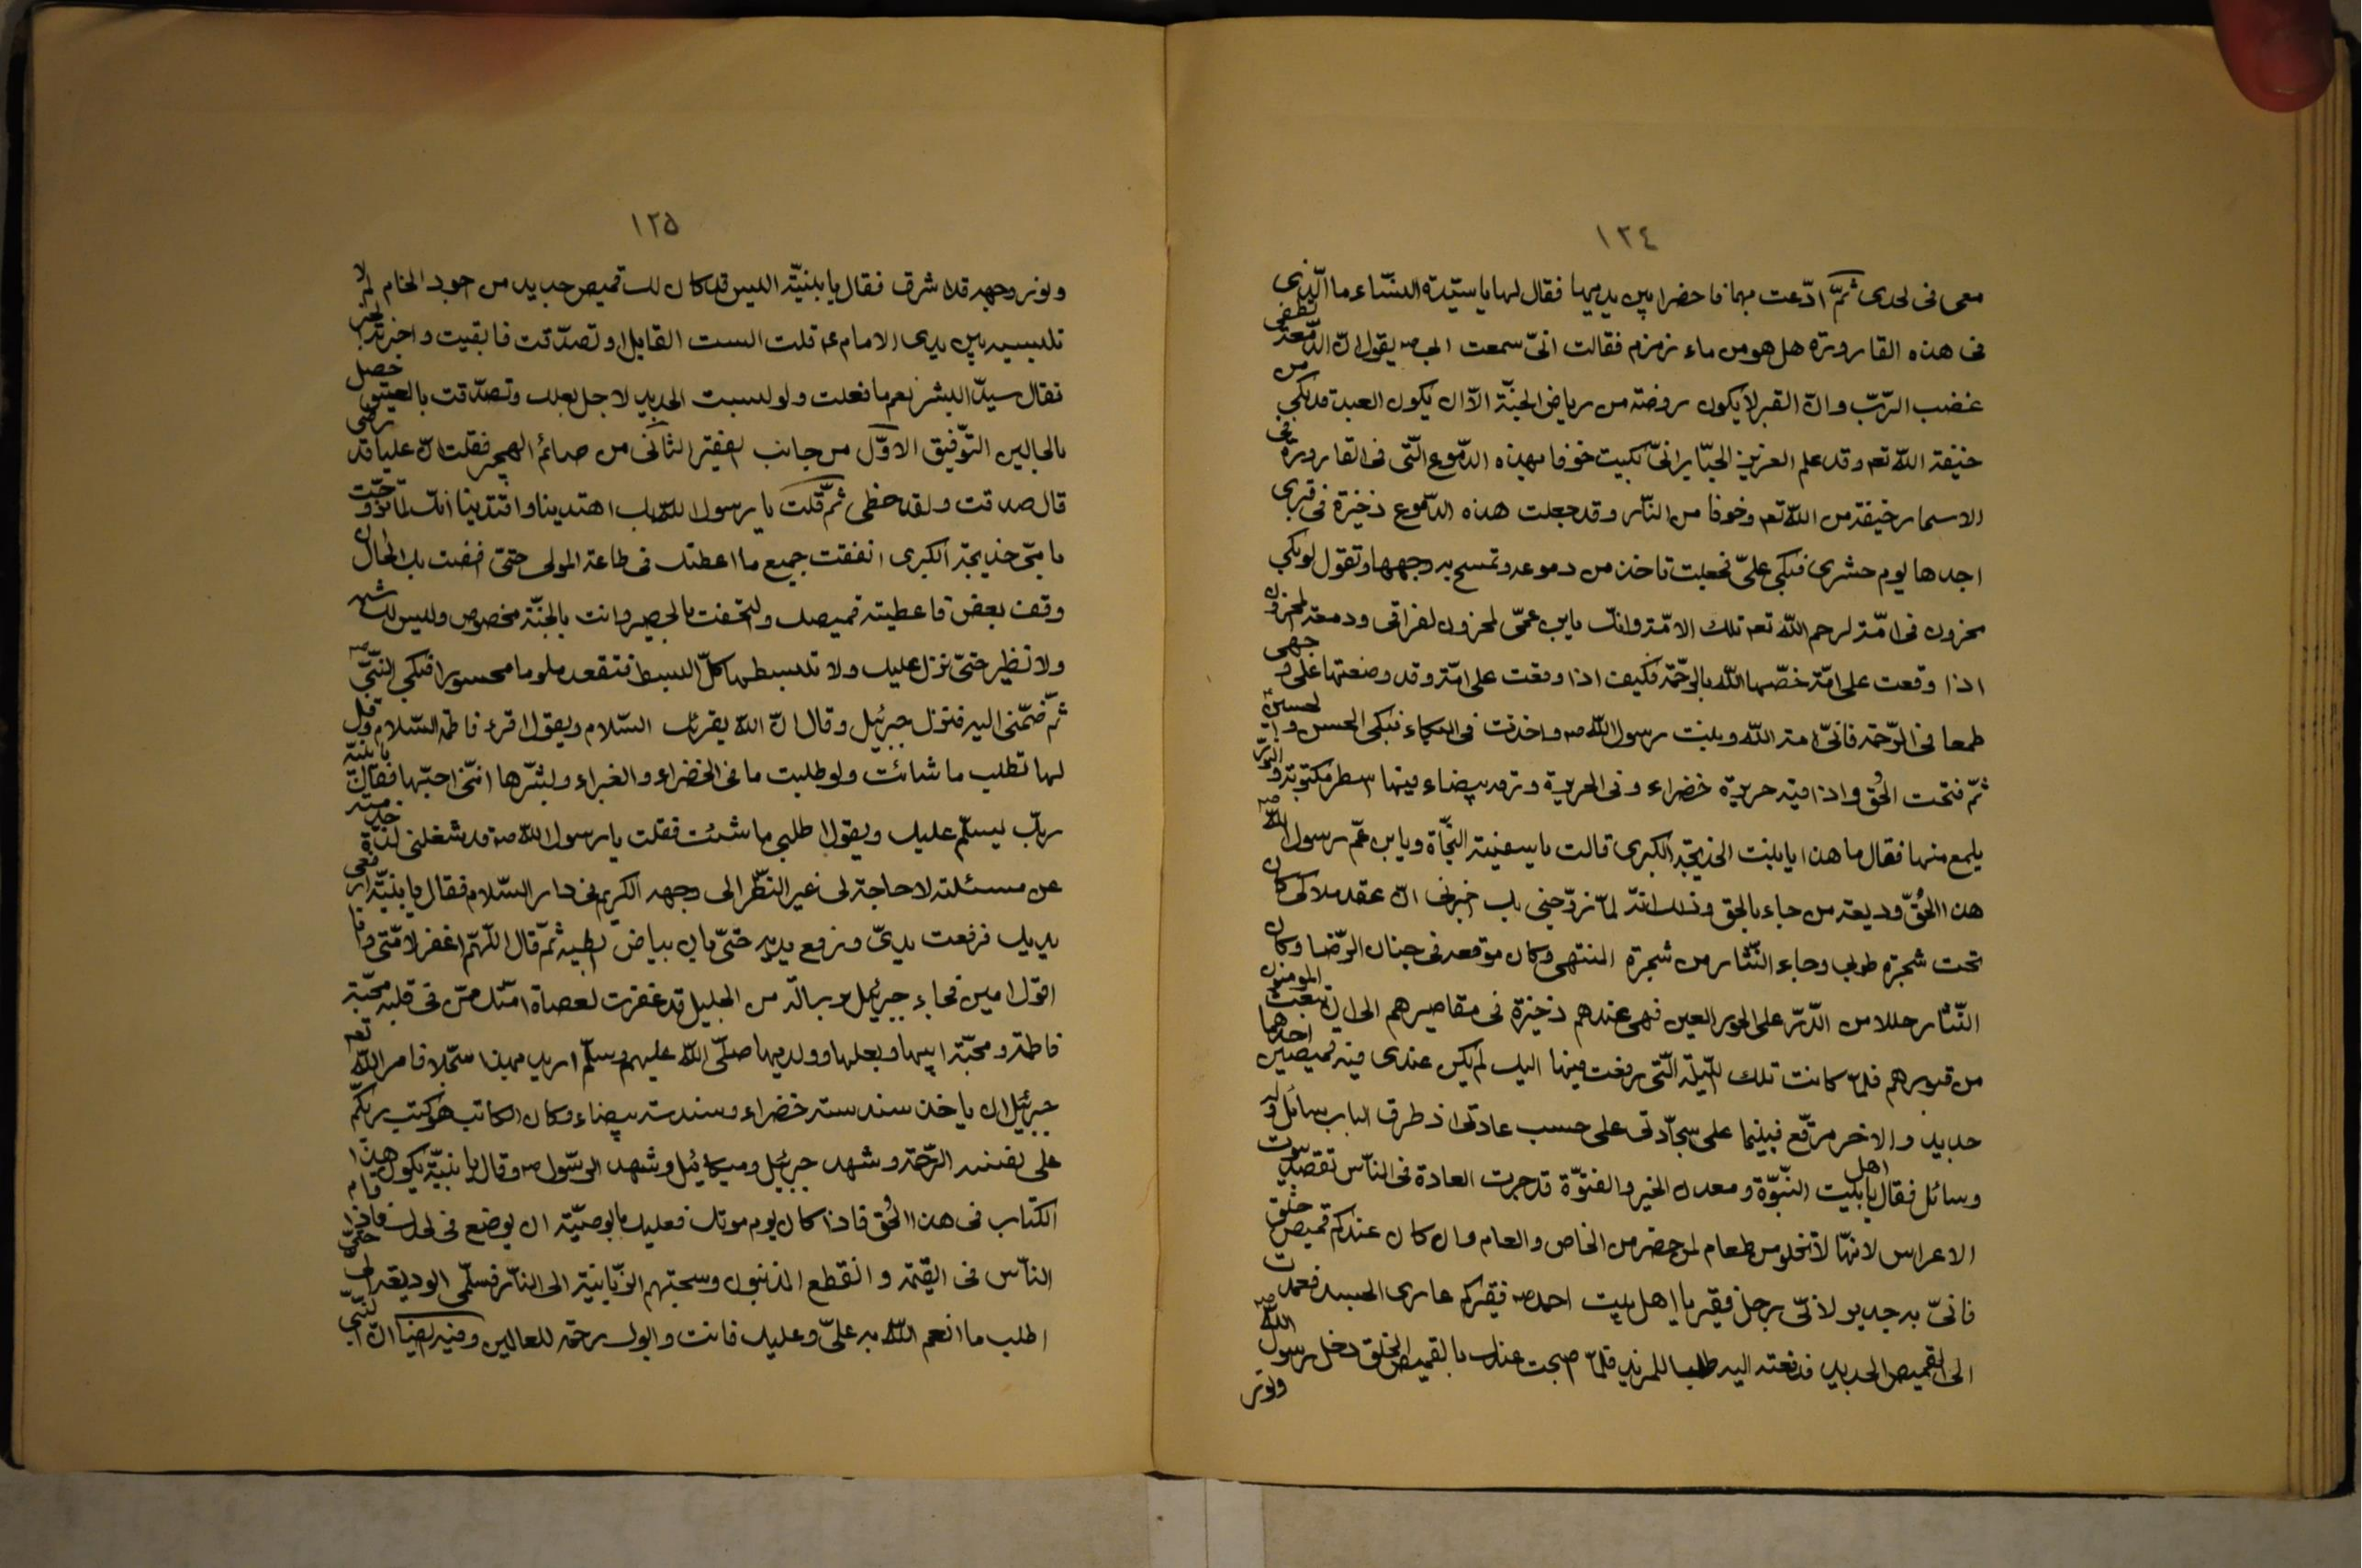 ١٢٤
معى فى لحدى ثمّ ادّعت بهما فاحضرا بين يديها فقال لها يا سيّدة النسّاء ما الّذى
فى هذه القارورة هل هو من ماء زمزم فقالت انىّ سمعت ابى ص يقول انّ الدّمعة تطفى
غضب الرّبّ وانّ القبر لا يكون روضة من رياض الجنّة الّا ان يكون العبد قد بكى من
خيفة اللّه تعه وقد علم العزيز الجبّار انىّ بكيت خوفا بهذه الدّموع الّتى فى القارورة فى
الاسحار خيفة من اللّه تعه وخوفا من النّار وقد جعلت هذه الدّموع ذخيرة فى قبرى
اجدها يوم حشرى فبكى علىّ فجعلت تاخذ من دموعه وتمسح به وجهها وتقول لو بكى
محزون فى امّة لرحم اللّه تعه تلك الامّة وانّك يابن عمّى لمحزون لفراقى ودمعة المحزون
اذا وقعت على امّة خصّها اللّه بالرّحمة فكيف اذا وقعت على امة وقد وضعتها على وجهى
طمعا فى الرّحمة فانىّ امة اللّه وبنت رسول اللّه ص واخذت فى البكاء فبكى الحسن والحسين
ثمّ فتحت الحُقّ واذا فيه حريرة خضراء وفى الحريرة ورقه بيضاء فيها اسطر مكتوبة والنّور
يلمع منها فقال ما هذا يا بنت الخديجة الكبرى قالت يا سفينة النّجاة ويابن عمّ رسول اللّه ص
هذا الحُقّ وديعة من جاء بالحق وذلك انّه لمّا زوّجنى بك اخبرنى انّ عقد ملاكى كان
تحت شجرة طوبى وجاء النّثار من شجرة المنتهى وكان موقعه فى جنان الرّضا وكان
النّثار حللا من الدّرّ على الحور العين فهى عندهم ذخيرة فى مقاصيرهم الى ان تبعث المومنون
من قبورهم فلمّا كانت تلك اللّيلة الّتى زففت فيها اليك لم يكن عندى فيه قميصين احدهما
جديد والاخر مرقّع فبينما على سجّادتى على حسب عادتى اذ طرق الباب سائل واىّ
وسائل فقال يا اهل بيت النّبوّة ومعدن الخير والفتوّة قد جرت العادة فى النّاس تقصد بيوت
الاعراس لانهّا لا تخلو من طعام لمن حضر من الخاص والعام وان كان عندكم قميص خلق
فانىّ به جدير لانىّ رجل فقير يا اهل بيت احمد ص فقيركم عارى الجسد فعمدت
الى القميص الجديد فدفعته اليه طلبا للمزيد فلمّا اصبحت عندك بالقميص الخلق دخل رسول اللّه ص
ونور
١٢٥
ونور وجهه قد اشرق فقال يا بنيّة اليس قد كان لك قميص جديد من جود الخام لم لا
تلبسيه بين يدى الامام عه قلت الست القايل لو تصدّقت فابقيت واخبرته الخبر
فقال سيّد البشر نعم ما فعلت ولو لبست الجديد لاجل بعلك وتصدّقت بالعتيق حصل
بالحالين التّوفيق الاوّل من جانب الفقير الثّانى من صائم الهجير فقلت انّ عليا قد رضى
قال صدقت ولقد حظى ثمّ قلت يا رسول اللّه بك اهتدينا واقتدينا انّك لمّا تزوّجت
بامّى خديجة الكبرى انفقت جميع ما اعطتك فى طاعة المولى حتىّ افضت بك الحال ان
وقف بعض فاعطيته قميصك والتحفت بالحصير وانت بالجنّة مخصوص وليس لك شبه
ولا نظير حتىّ نزل عليك ولا تبسطها كلّ البسط فتقعد ملوما محسورا فبكى النّبىّ ص
ثمّ ضمّنى اليه فنزل جبرئيل وقال انّ اللّه يقرئك السّلام ويقول اقرء فاطمة السّلام وقل
لها تطلب ما شائت ولو طلبت ما فى الخضراء والغبراء وبشّرها انىّ احبّها فقال يا بنيّة
ربّك يسلّم عليك ويقول اطلبى ما شئت فقلت يا رسول اللّه ص قد شغلنى لذّة خدمته
عن مسئلته لا حاجة لى غير النّظر الى وجهه الكريم فى دار السّلام فقال يا بنيّة ارفعى
يديك فرفعت يدىّ ورفع يديه حتىّ بان بياض ابطيه ثمّ قال اللّهمّ اغفر لامّتى وانا
اقول امين فجاء جبرئيل برسالة من الجليل قد غفرت لعصاة امّتك ممّن فى قلبه محبّة
فاطمة ومحبّة ابيها وبعلها وولديها صلّى اللّه عليهم وسلّم اريد بهذا سجّلا فامر اللّه تعه
جبرئيل ان ياخذ سندسة خضراء وسندسة بيضاء وكان الكاتب هو كتب ربّكم
على نفسه الرّحمة وشهد جبرئيل وميكائيل وشهد الرّسول ص وقال يا بنيّة يكون هذا
الكتاب فى هذا الحُقّ فاذا كان يوم موتك فعليك بالوصيّة ان يوضع فى لحدك فاذا قام
النّاس فى القيٰمة وانقطع المذنبون وسحبتهم الزّبانية الى النّار فسلّمى الوديعة الى حتىّ
اطلب ما انعم اللّه به علىّ وعليك فانت وابوك رحمة للعالمين وفيه ايضا انّ النّبىّ